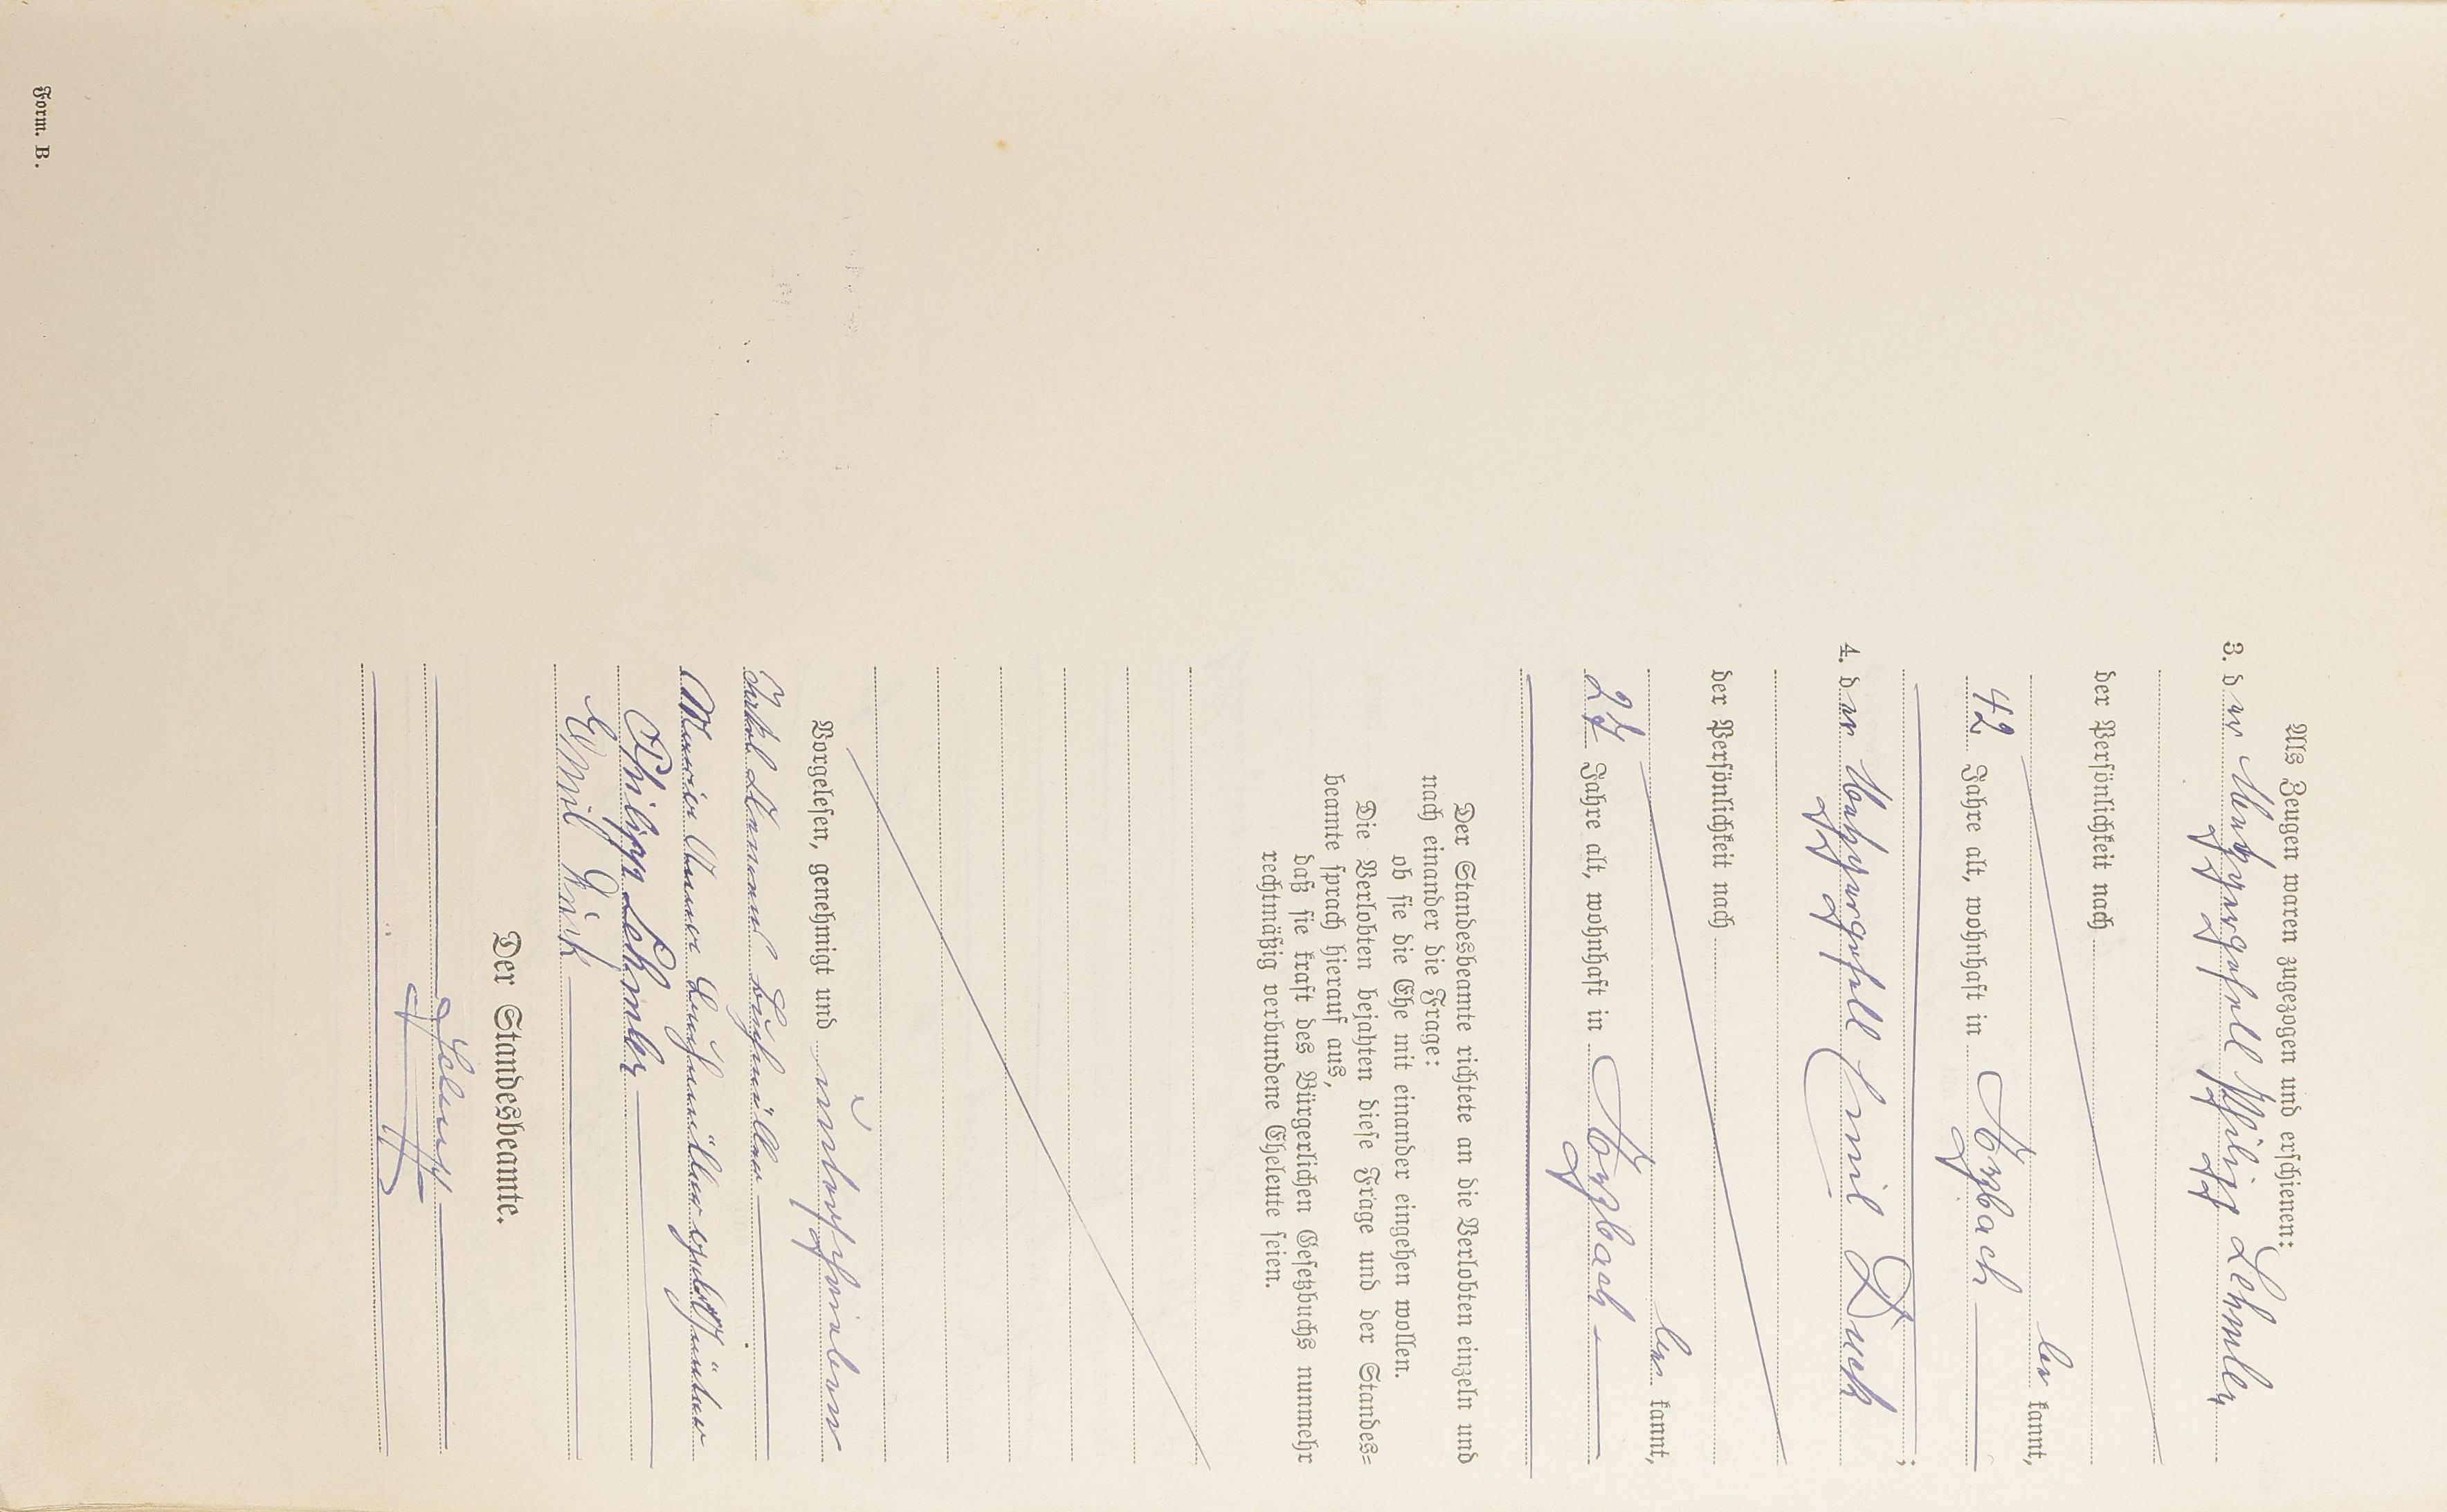 Als Zeugen waren zugezogen und erschienen:
3. der Metzgergesell Philipp Lehmler
der Persönlichkeit nach
be kannt,
42 Jahre alt, wohnhaft in Morzbach
4. der Emil Dusk
der Persönlichkeit nach
be kannt,
27 Jahre alt, wohnhaft in Morzbach
Der Standesbeamte richtete an die Verlobten einzeln und
nach einander die Frage:
ob sie die Ehe mit einander eingehen wollen.
Die Verlobten bejahten diese Frage und der Standes=
beamte sprach hierauf aus,
daß sie kraft des Bürgerlichen Gesetzbuchs nunmehr
rechtmäßig verbundene Eheleute seien.
Vorgelesen, genehmigt und unterschrieben
Philipp Lehmler
Emil
Der Standesbeamte.
Form. B.